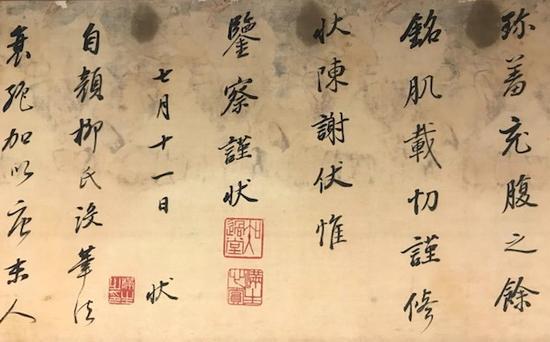 珎羞充腹之餘
銘肌載切謹脩
狀陳謝伏惟
鑒察謹狀
七月十一日
狀
自顏柳氏沒筆法
衰絕加以唐末人